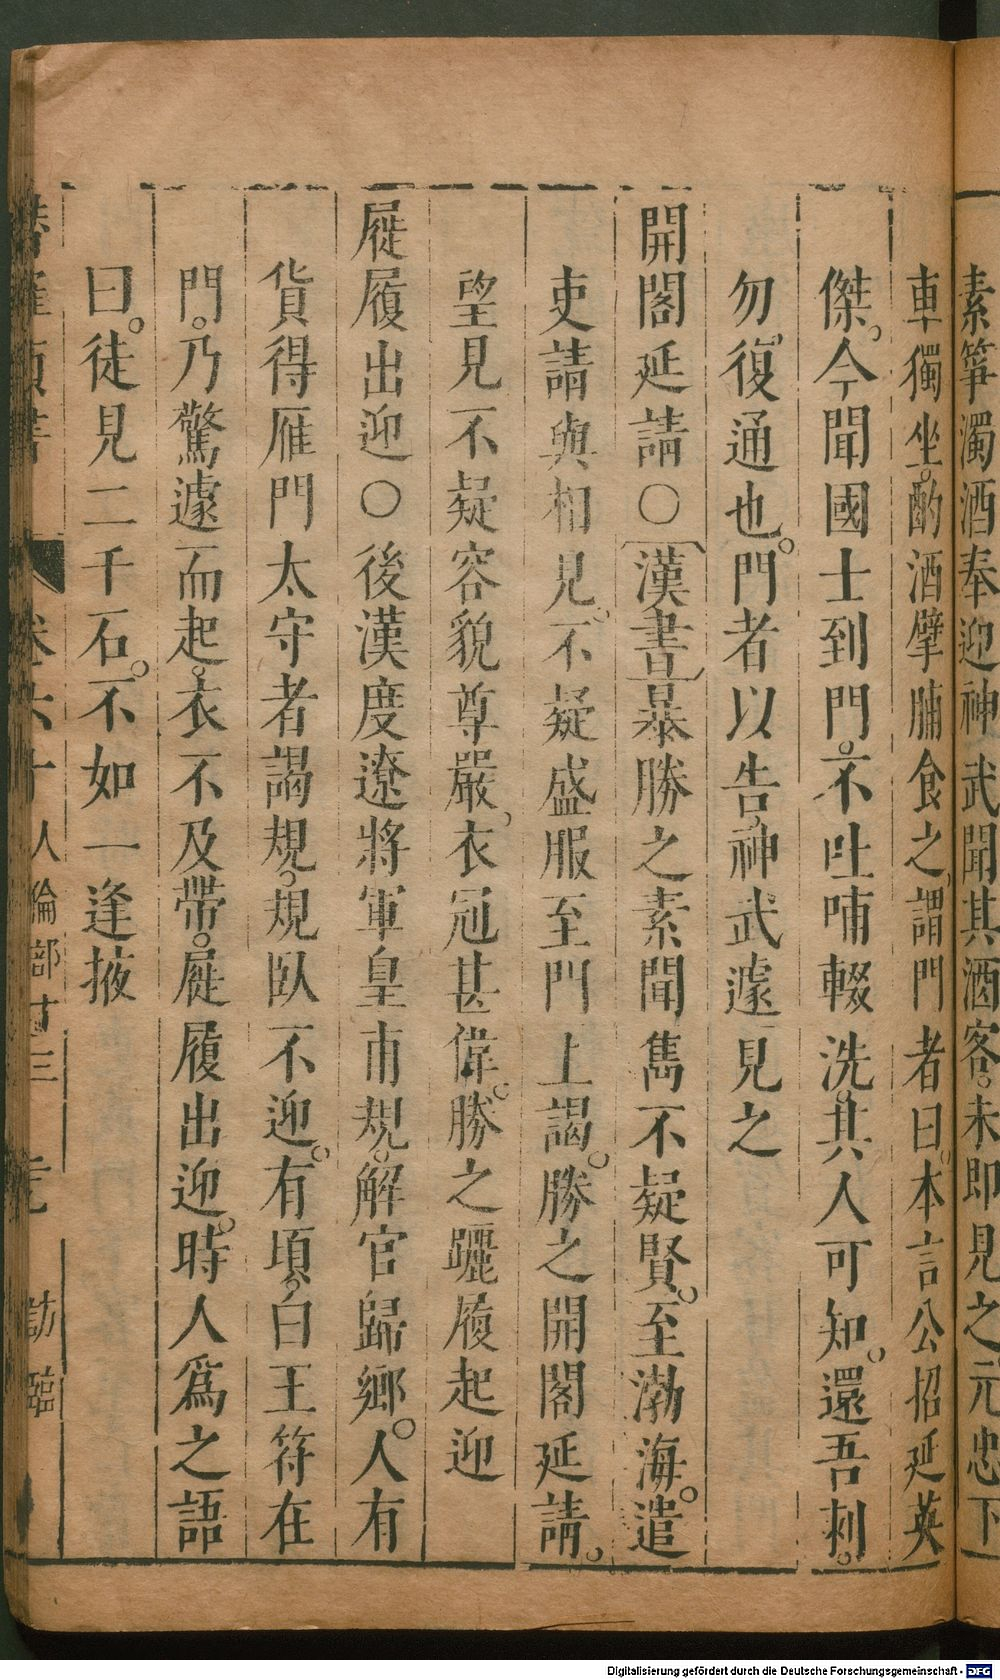 素箏濁酒奉迎神武聞其酒客。未即見之元忠下
車獨坐。酌酒擘脯食之。謂門者曰。本言公招延英
傑。今聞國士到門。不吐哺輟洗。其人可知。還吾刺。
勿復通也。門者以告。神武遽見之
開閣延請○〔漢書〕暴勝之素聞雋不疑賢。至渤海。遣
吏請與相見。不疑盛服至門上謁。勝之開閣延請。
望見不疑容貌尊嚴。衣冠甚偉。勝之躧履起迎
屣履出迎○後漢度遼將軍皇甫規。解官歸鄉。人有
貨得雁門太守者謁規。規臥不迎。有頃。白王符在
門。乃驚遽而起。衣不及帶。屣履出迎。時人爲之語
曰。徒見二千石。不如一逢掖
卷六十 人倫部廿三 訪臨
Digitalisierung gefördert durch die Deutsche Forschungsgemeinschaft - DFG